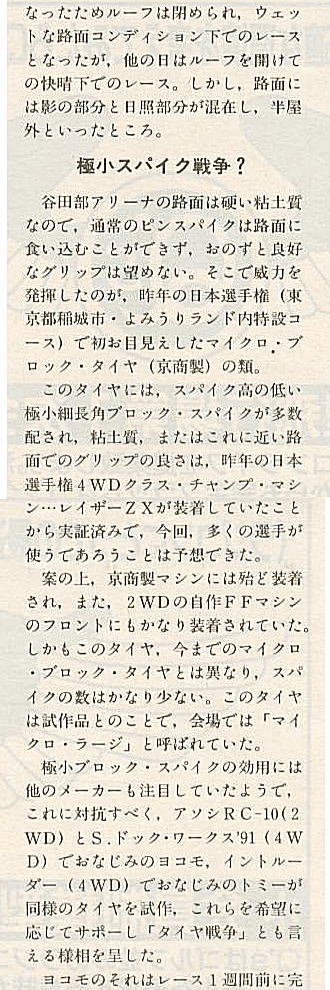 なったためルーフは閉められ，ウェッ
トな路面コンディション下でのレース
となったが，他の日はルーフを開けて
の快晴下でのレース。しかし，路面に
は影の部分と日照部分が混在し，半屋
外といったところ。
極小スパイク戦争？
谷田部アリーナの路面は硬い粘土質
なので，通常のピンスパイクは路面に
食い込むことができず，おのずと良好
なグリップは望めない。そこで威力を
発揮したのが，昨年の日本選手権（東
京都稲城市・よみうりランド内特設コ
ース）で初お目見えしたマイクロ・ブ
ロック・タイヤ（京商製）の類。
このタイヤには，スパイク高の低い
極小細長角ブロック・スパイクが多数
配され，粘土質，またはこれに近い路
面でのグリップの良さは，昨年の日本
選手権４ＷＤクラス・チャンプ・マシ
ン…レイザーＺＸが装着していたこと
から実証済みで，今回，多くの選手が
使うであろうことは予想できた。
案の上，京商製マシンには殆ど装着
され，また，２ＷＤの自作ＦＦマシン
のフロントにもかなり装着されていた。
しかもこのタイヤ，今までのマイクロ
・ブロック・タイヤとは異なり，スパ
イクの数はかなり少ない。このタイヤ
は試作品とのことで，会場では「マイ
クロ・ラージ」と呼ばれていた。
極小ブロック・スパイクの効用には
他のメーカーも注目していたようで，
これに対抗すべく，アソシＲＣ-10(２
ＷＤ）とＳ.ドック・ワークス'91（４Ｗ
Ｄ）でおなじみのヨコモ，イントルー
ダー（４ＷＤ）でおなじみのトミーが
同様のタイヤを試作，これらを希望に
応じてサポーし「タイヤ戦争」とも言
える様相を呈した。
ヨコモのそれはレース１週間前に完